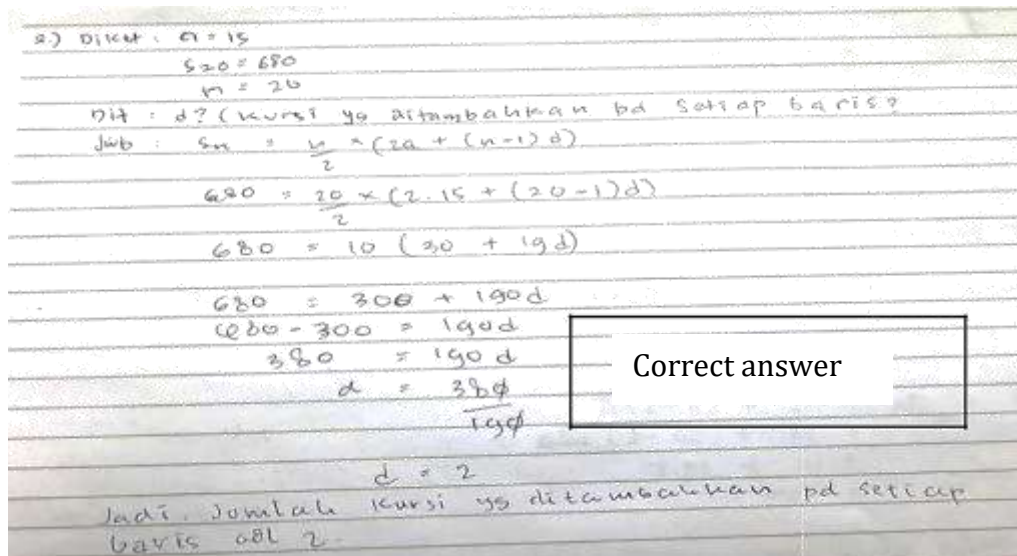 2.) Diket : a = 15
S20 = 680
n = 20
Dit : d? (kursi yg ditambahkan pd setiap baris?
Jwb : Sn = n/2 × (2a + (n-1) d)
680 = 20/2 × (2.15 + (20-1)d)
680 = 10 (30 + 19d)
680 = 300 + 190d
680 - 300 = 190d
380 = 190 d
d = 380/190
Correct answer
d = 2
Jadi, Jumlah kursi yg ditambahkan pd setiap
baris adl 2.